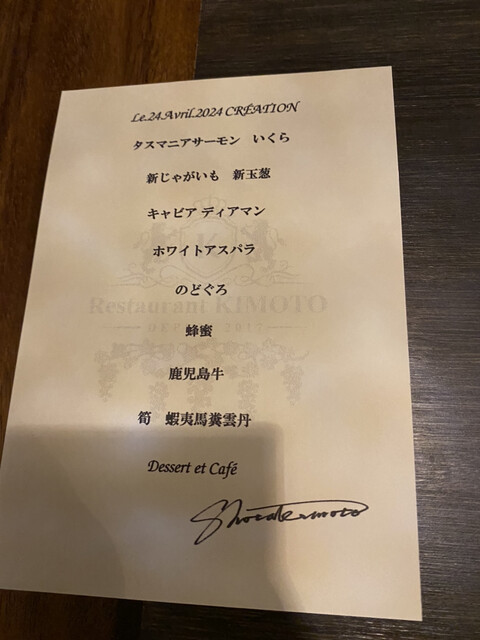 Le.24.Avril.2024 CRÉATION
タスマニアサーモン　いくら
新じゃがいも　新玉葱
キャビア ディアマン
ホワイトアスパラ
のどぐろ
Restaurant KIMOTO
DEPUIS 2017
蜂蜜
鹿児島牛
筍　蝦夷馬糞雲丹
Dessert et Café